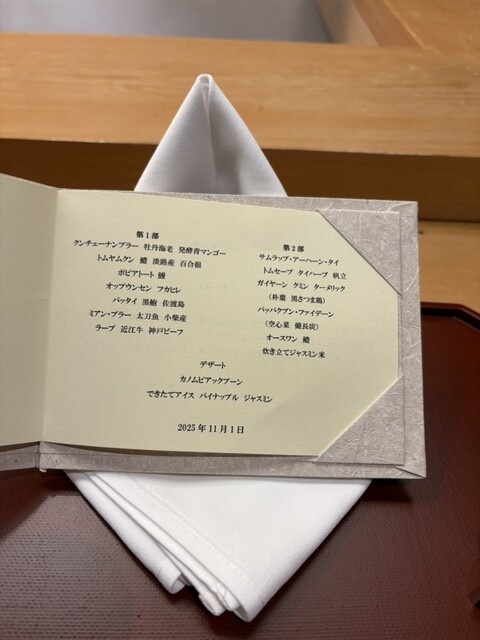 第1部
クンチェーナンプラー 牡丹海老 発酵青マンゴー
トムヤムクン 鱧 淡路産 百合根
ポピアトート 鰻
オップウンセン フカヒレ
パッタイ 黒鮑 佐渡島
ミアン・プラー 太刀魚 小柴産
ラープ 近江牛 神戸ビーフ
第2部
サムラップ・アーハーン・タイ
トムセープ タイハーブ 帆立
ガイヤーン クミン ターメリック
（朴葉 黒さつま鶏）
パッパクブン・ファイデーン
（空心菜 備長炭）
オースワン 鱧
炊き立てジャスミン米
デザート
カノムピアックプーン
できたてアイス パイナップル ジャスミン
2025年11月1日